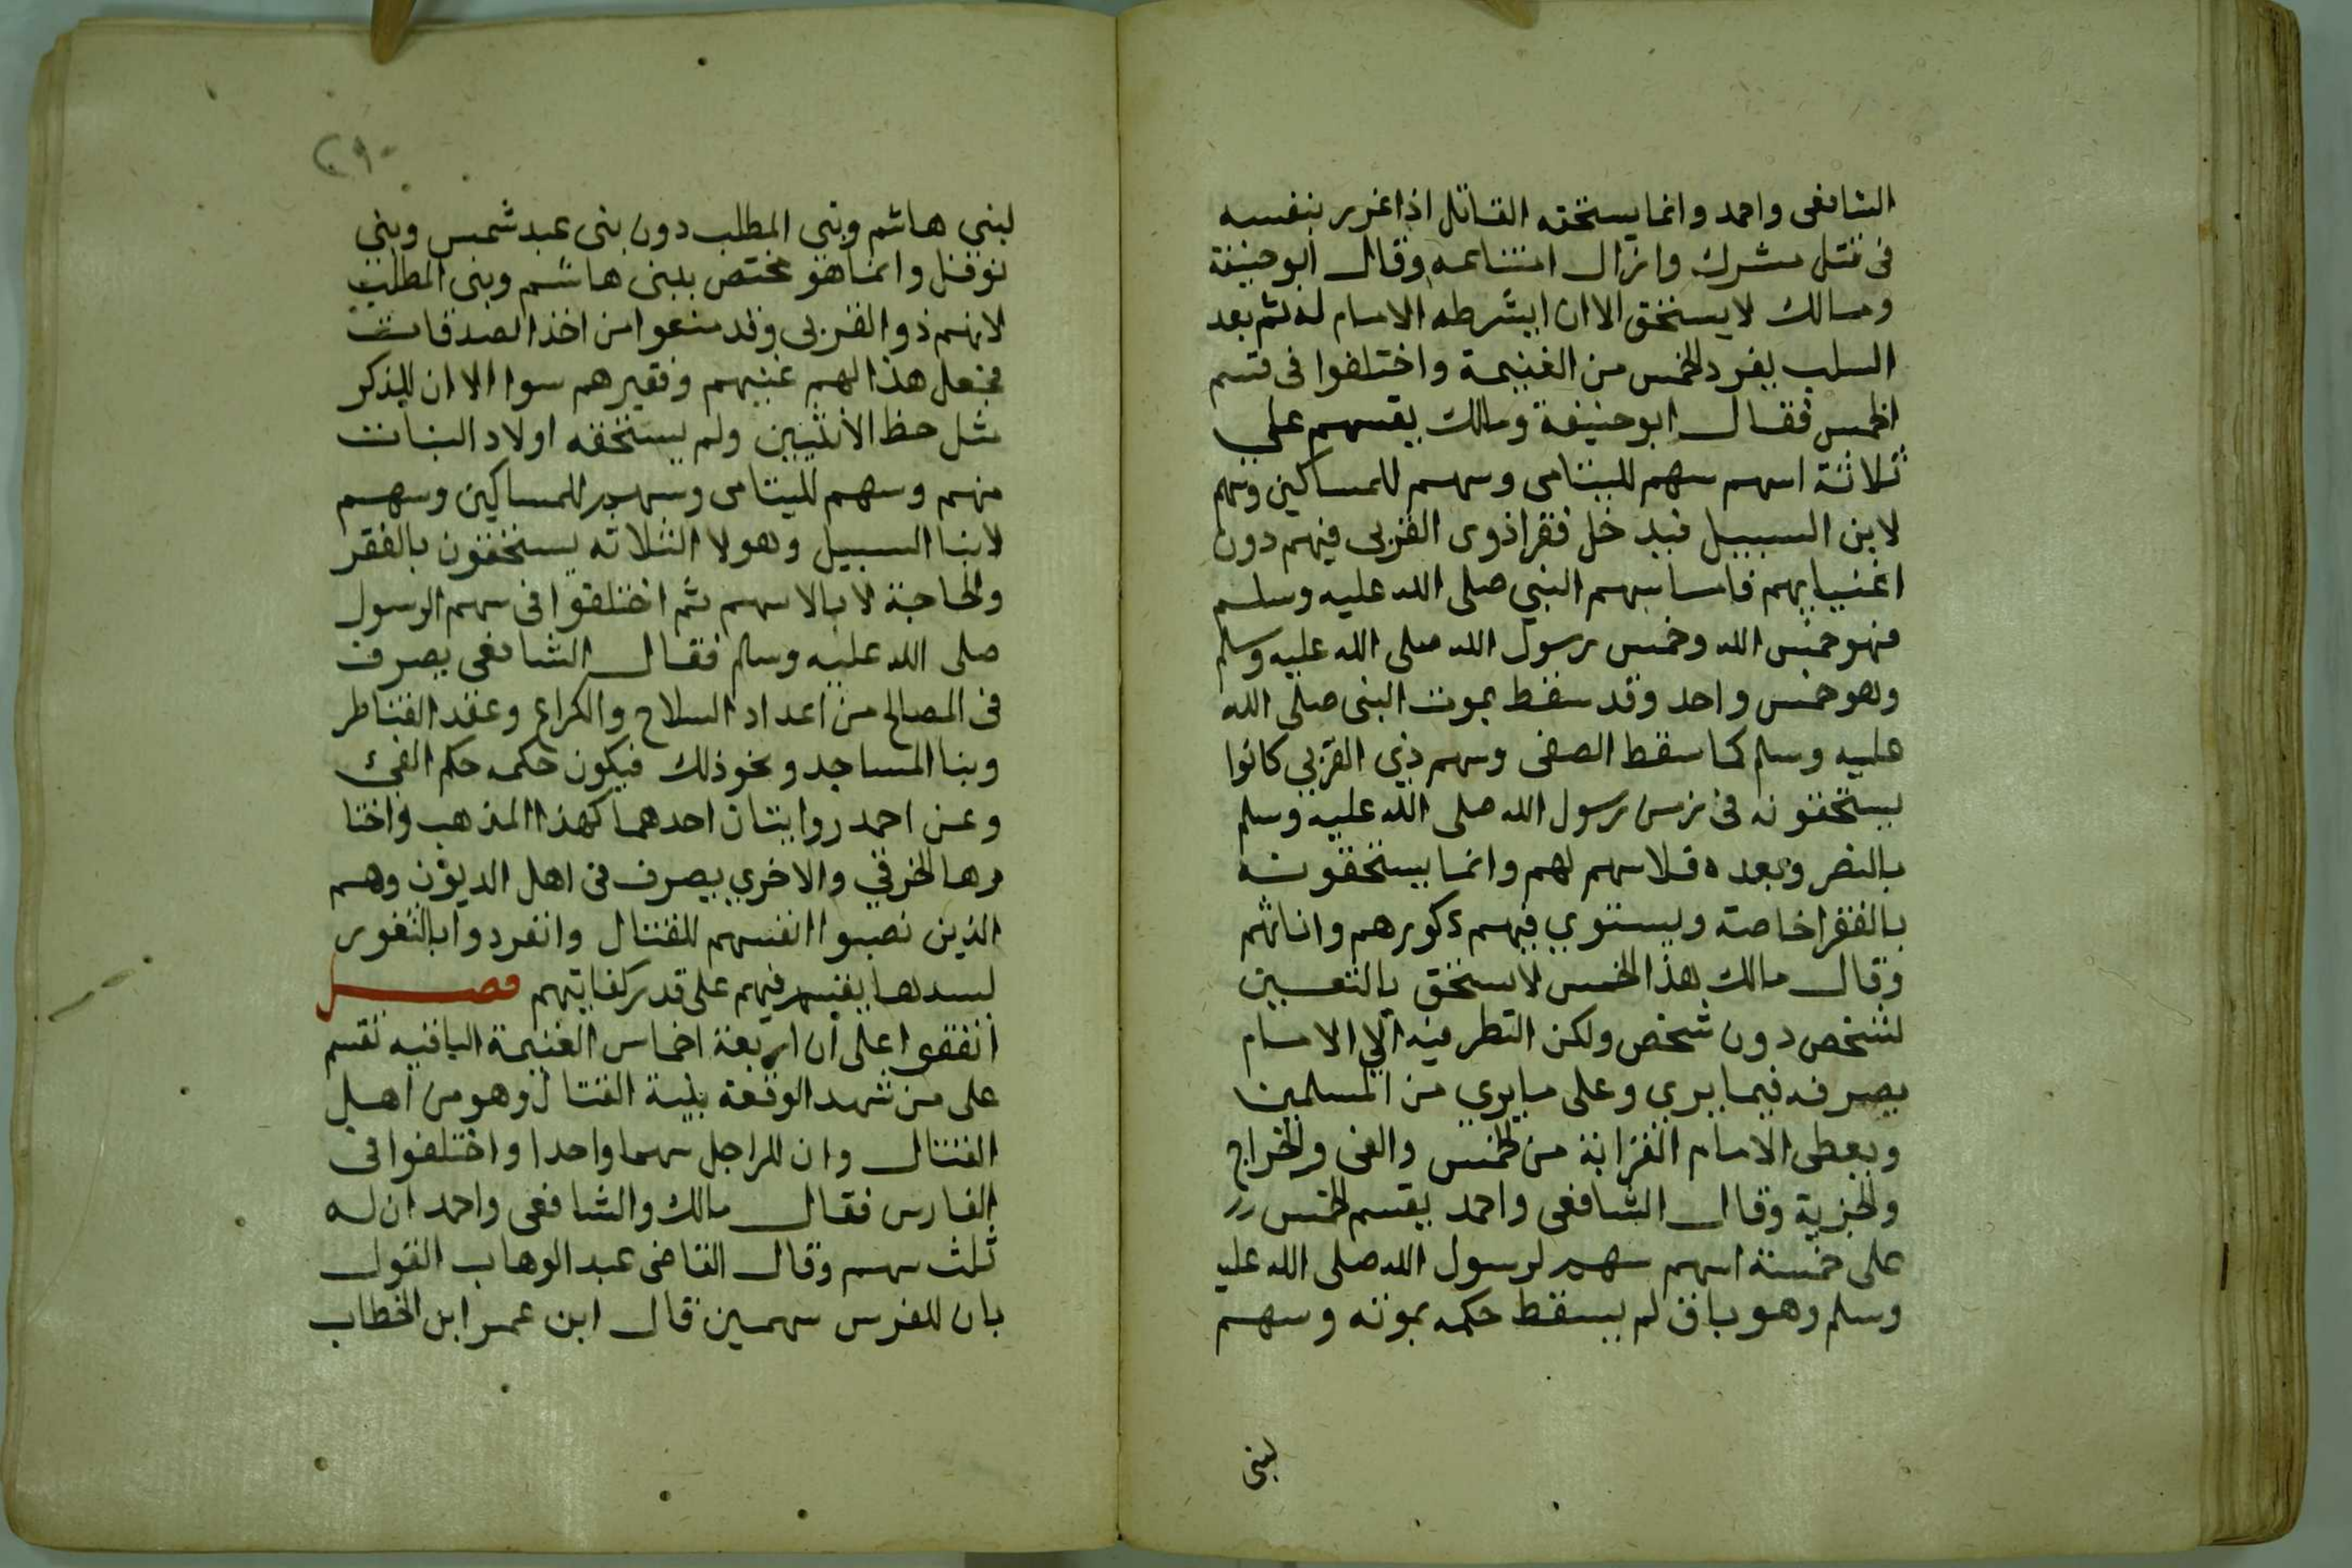 الشافعى واحمد وانما يستحقه القاتل اذا غرر بنفسه
فى قتل مشرك وازال امتناعه وقال ابو حنيفة
ومالك لا يستحق الا ان ايشرطه الامام له ثم بعد
السلب يفرد الخمس من الغنيمة واختلفوا فى قسم
الخمس فقال ابو حنيفة ومالك يقسهم على
ثلاثة اسهم سهم لليتامى وسهم للمساكين وسهم
لابن السبيل فيدخل فقرا ذوى القربى فيهم دون
اغنيايهم فاما سهم النبي صلى الله عليه وسلم
فهو خمس الله وخمس رسول الله صلى الله عليه وسلم
وهو خمس واحد وقد سقط بموت النبى صلى الله
عليه وسلم كما سقط الصفى وسهم ذي القربى كانوا
يستحقونه فى زمن رسول الله صلى الله عليه وسلم
بالنصر وبعده فلا سهم لهم وانما يستحقونه
بالفقرا خاصة ويستوي فيهم ذكورهم واناثهم
وقال مالك هذا الخمس لا يستحق بالتعيين
لشخص دون شخص ولكن النظر فيه الى الامام
يصرفه فيما يرى وعلى ما يرى من المسلمين
ويعطى الامام القرابة من الخمس والفى والخراج
والجزية وقال الشافعى واحمد يقسم الخمس
على خمسة اسهم سهم لرسول الله صلى الله عليه
وسلم وهو باق لم يسقط حكمه بموته وسهم
لبنى
٢٩٠
لبني هاشم وبنى المطلب دون بنى عبد شمس وبنى
نوفل وانما هو مختص ببنى هاشم وبنى المطلب
لانهم ذوا القربى وقد منعوا من اخذ الصدقات
فجعل هذا لهم غنيهم وفقيرهم سوا الا ان للذكر
مثل حظ الانثيين ولم يستحقه اولاد البنات
منهم وسهم لليتامى وسهم للمساكين وسهم
لابنا السبيل وهولا الثلاثه يستحقون بالفقر
والحاجة لا بالاسهم ثم اختلفوا فى سهم الرسول
صلى الله عليه وسلم فقال الشافعى يصرف
فى المصالح من اعداد السلاح والكراع وعقد القناطر
وبنا المساجد ونحو ذلك فيكون حكمه حكم الفئ
وعن احمد روايتان احدهما كهذا المذهب واختا
رها الخرقي والاخري يصرف فى اهل الديون وهم
الذين نصبوا انفسهم للقتال وانفردوا بالثغور
لسدها يقسم فيهم على قدر كفايتهم فصل
اتفقوا على ان اربعة اخماس الغنيمة الباقيه تقسم
على من شهد الوقعة بنية القتال وهو من اهل
القتال وان للراجل سهما واحدا واختلفوا فى
الفارس فقال مالك والشافعى واحمد ان له
ثلث سهم وقال القاضى عبد الوهاب القول
بان للفرس سهمين قال ابن عمر ابن الخطاب